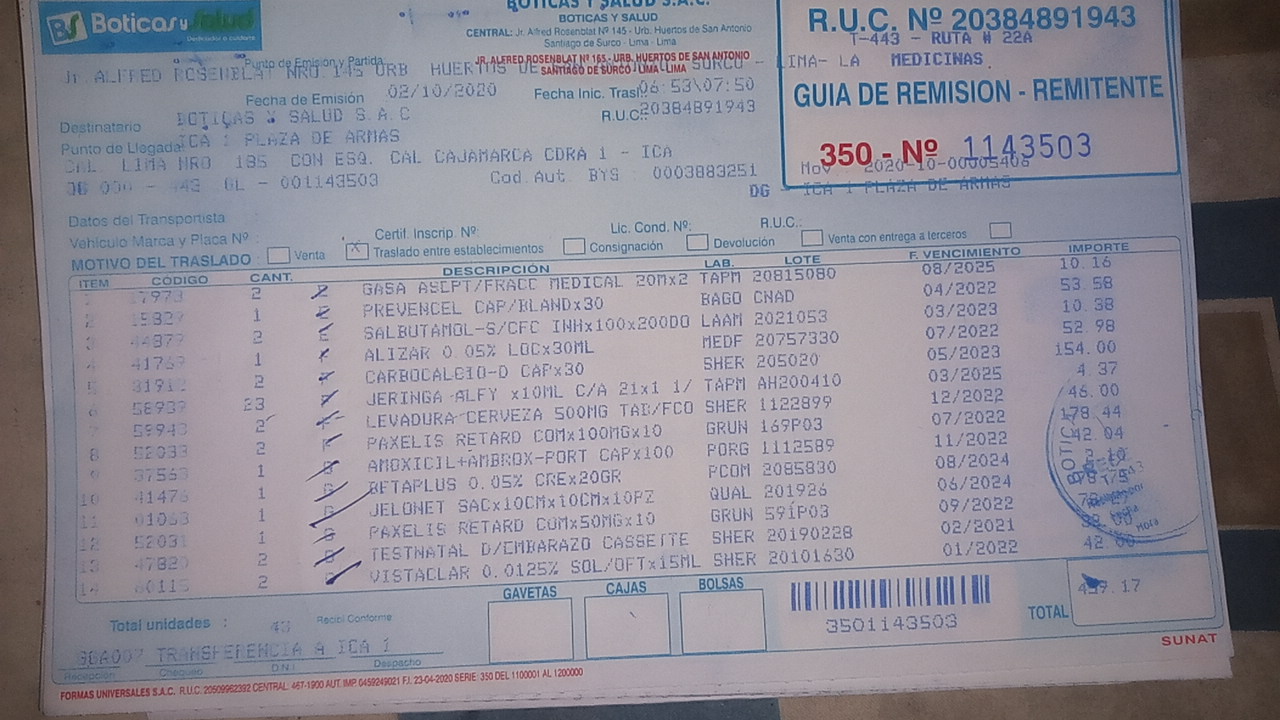 BS Boticas y Salud
BOTICAS Y SALUD S.A.C.
BOTICAS Y SALUD
CENTRAL: Jr. Alfred Rosenblat Nº 145 - Urb. Huertos de San Antonio
Santiago de Surco - Lima - Lima
JR. ALFRED ROSENBLAT Nº 165 - URB. HUERTOS DE SAN ANTONIO
SANTIAGO DE SURCO - LIMA - LIMA
R.U.C. Nº 20384891943
T-443 - RUTA # 22A
MEDICINAS
GUIA DE REMISION - REMITENTE
350 - Nº 1143503
Mov 2020-10-00005408
DG - ICA 1 PLAZA DE ARMAS
Punto de Emisión y Partida
Jr. ALFRED ROSENBLAT NRO 145 URB HUERTOS DE SURCO - LIMA- LA
Fecha de Emisión 02/10/2020 Fecha Inic. Trasl. 06:53\07:50
Destinatario BOTICAS Y SALUD S.A.C R.U.C. 20384891943
Punto de Llegada ICA 1 PLAZA DE ARMAS
CAL LIMA NRO 185 CON ESQ. CAL CAJAMARCA CDRA 1 - ICA
OG 000 - 443 GL - 001143503 Cod. Aut. BYS 0003883251
Datos del Transportista
Vehículo Marca y Placa Nº Certif. Inscrip. Nº Lic. Cond. Nº: R.U.C.:
MOTIVO DEL TRASLADO Venta X Traslado entre establecimientos Consignación Devolución Venta con entrega a terceros
ITEM CÓDIGO CANT. DESCRIPCIÓN LAB. LOTE F. VENCIMIENTO IMPORTE
2 GASA ASEPT/FRACC MEDICAL 20Mx2 TAPM 20815080 08/2025 10.16
1 PREVENCEL CAP/BLANDx30 BAGO CNAD 04/2022 53.58
3 44877 2 SALBUTAMOL-S/CFC INHx100x200DO LAAM 2021053 03/2023 10.38
4 41769 1 ALIZAR 0.05% LOCx30ML MEDF 20757330 07/2022 52.98
5 2 CARBOCALCIO-D CAPx30 SHER 205020 05/2023 154.00
6 58937 23 JERINGA ALFY x10ML C/A 21x1 1/ TAPM AH200410 03/2025 4.37
7 59943 2 LEVADURA CERVEZA 500MG TAB/FCO SHER 1122899 12/2022 46.00
8 52033 2 PAXELIS RETARD COMx100MGx10 GRUN 169P03 07/2022 178.44
9 37563 1 AMOXICIL+AMBROX-PORT CAPx100 PORG 1112589 11/2022 42.04
10 41476 1 BETAPLUS 0.05% CREx20GR PCOM 2085830 08/2024
11 01063 1 JELONET SACx10CMx10CMx10PZ QUAL 201926 06/2024
12 52031 1 PAXELIS RETARD COMx50MGx10 GRUN 591P03 09/2022
13 47820 2 TESTNATAL D/EMBARAZO CASSETTE SHER 20190228 02/2021
14 60115 2 VISTACLAR 0.0125% SOL/OFTx15ML SHER 20101630 01/2022 42.00
BOTICA
Hora
GAVETAS CAJAS BOLSAS
Total unidades : 43 Recibí Conforme
3501143503
TOTAL
TRANSFERENCIA A ICA 1
Recepción Chequeo D.N.I. Despacho
SUNAT
FORMAS UNIVERSALES S.A.C. R.U.C. 20509962392 CENTRAL: 467-1900 AUT. IMP. 0459249021 F.I. 23-04-2020 SERIE: 350 DEL 1100001 AL 1200000